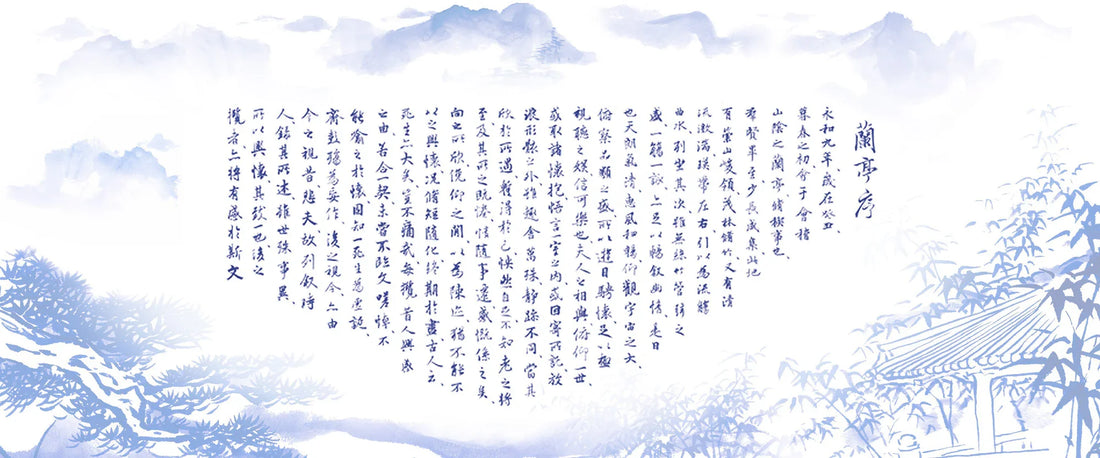 蘭亭序
永和九年歲在癸丑、
暮春之初會于會稽
山陰之蘭亭脩稧事也、
羣賢畢至少長咸集此地
有崇山峻領茂林脩竹又有清
流激湍暎帶左右引以為流觴
曲水列坐其次雖無絲竹管弦之
盛一觴一詠、上足以暢敘幽情、是日
也天朗氣清惠風和暢仰觀宇宙之大、
俯察品類之盛所以遊目騁懷足以極
視聽之娛信可樂也夫人之相與俯仰一世、
或取諸懷抱悟言一室之内或因寄所託放
浪形骸之外雖趣舍萬殊靜躁不同、當其
欣於所遇暫得於己怏然自足不知老之將
至及其所之既惓情隨事遷感慨係之矣、
向之所欣俛仰之閒以為陳迹猶不能不
以之興懷况脩短隨化終期於盡、古人云、
死生亦大矣豈不痛哉每攬昔人興感
之由若合一契未嘗不臨文嗟悼不
能喻之於懷固知一死生為虛誕、
齊彭殤為妄作、後之視今亦由
今之視昔悲夫故列敘時
人錄其所述雖世殊事異
所以興懷其致一也、後之
攬者亦將有感於斯文